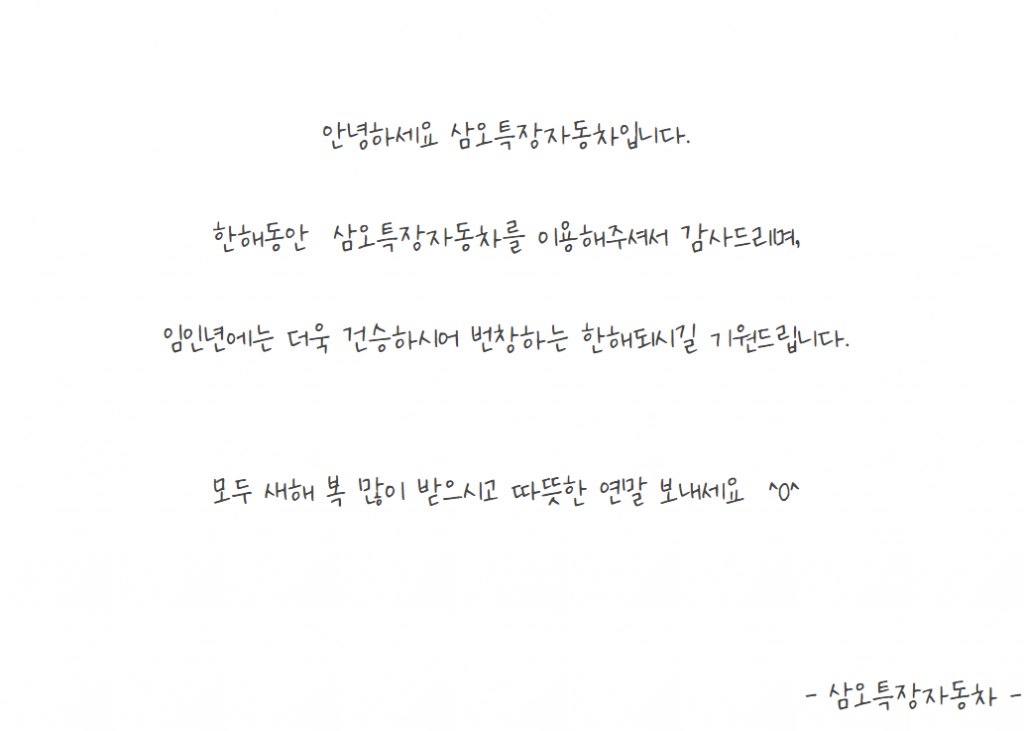 안녕하세요 삼오특장자동차입니다.
한해동안 삼오특장자동차를 이용해주셔서 감사드리며,
임인년에는 더욱 건승하시어 번창하는 한해되시길 기원드립니다.
모두 새해 복 많이 받으시고 따뜻한 연말 보내세요 ^0^
- 삼오특장자동차 -